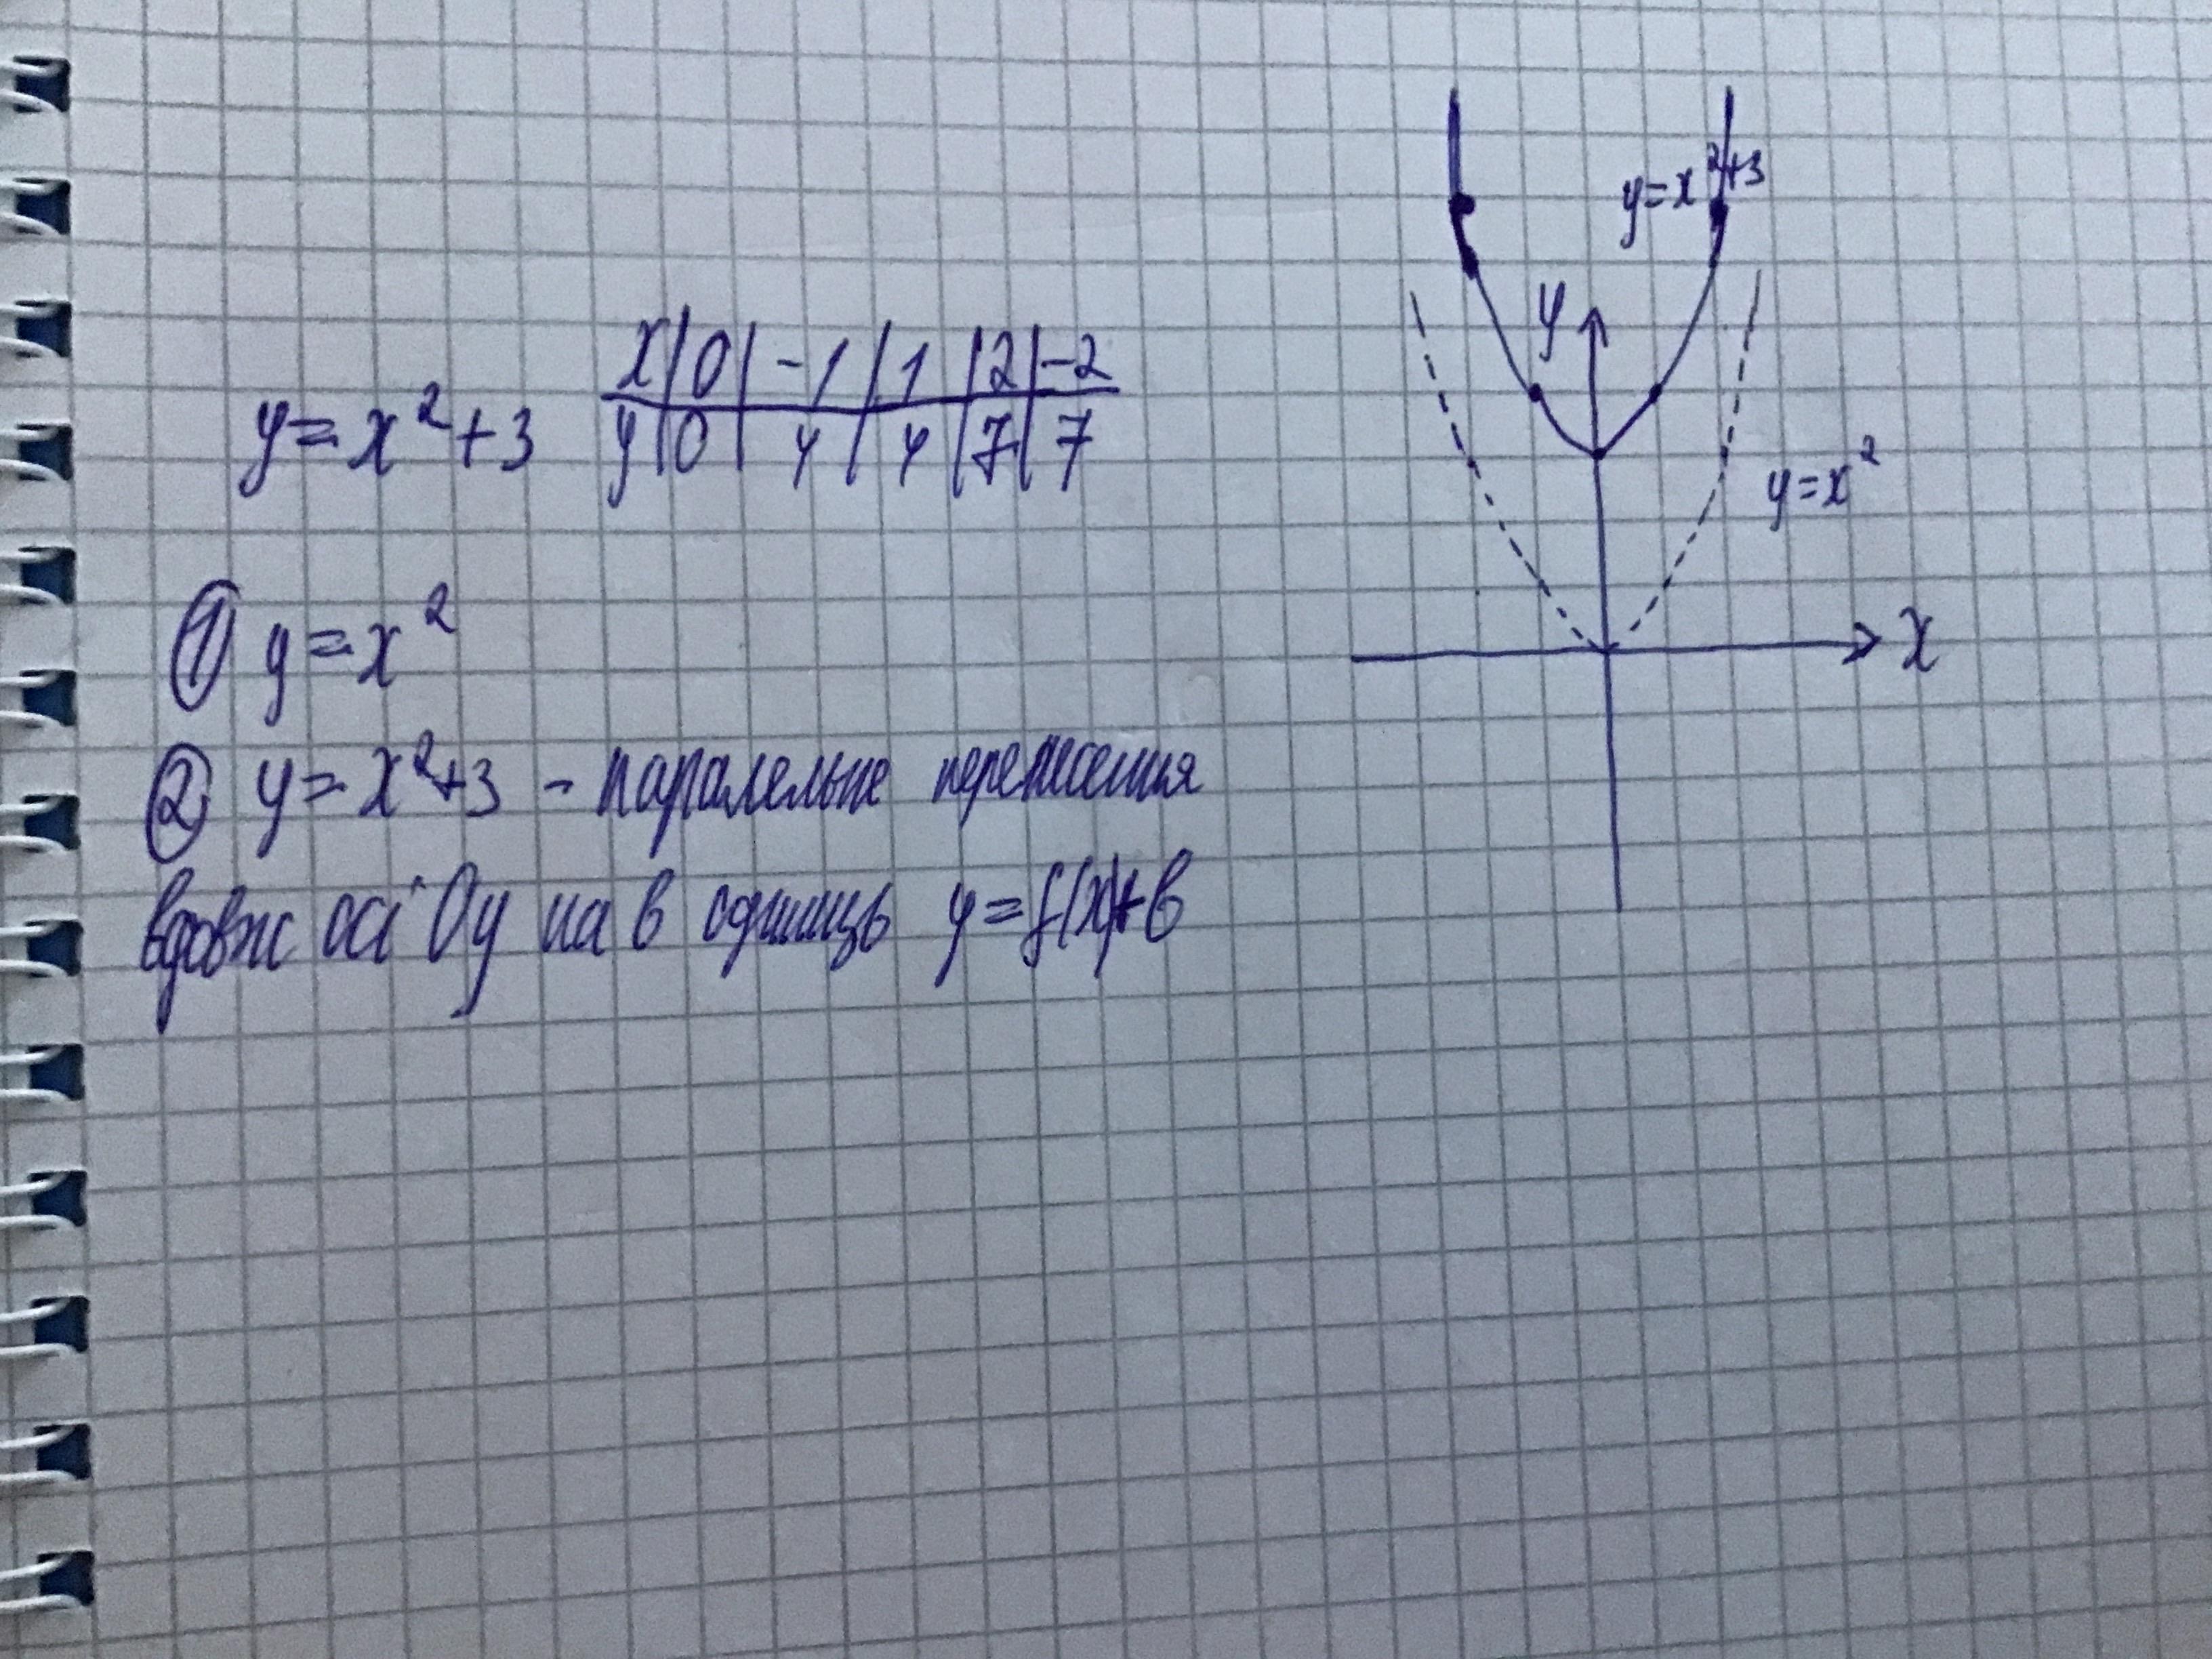 y = x² + 3
x | 0 | -1 | 1 | 2 | -2
y | 0 | 4 | 4 | 7 | 7
① y = x²
② y = x² + 3 - паралельне перенесення
вздовж осі Oy на в одиниць y = f(x) + в
y = x² + 3
y
y = x²
x